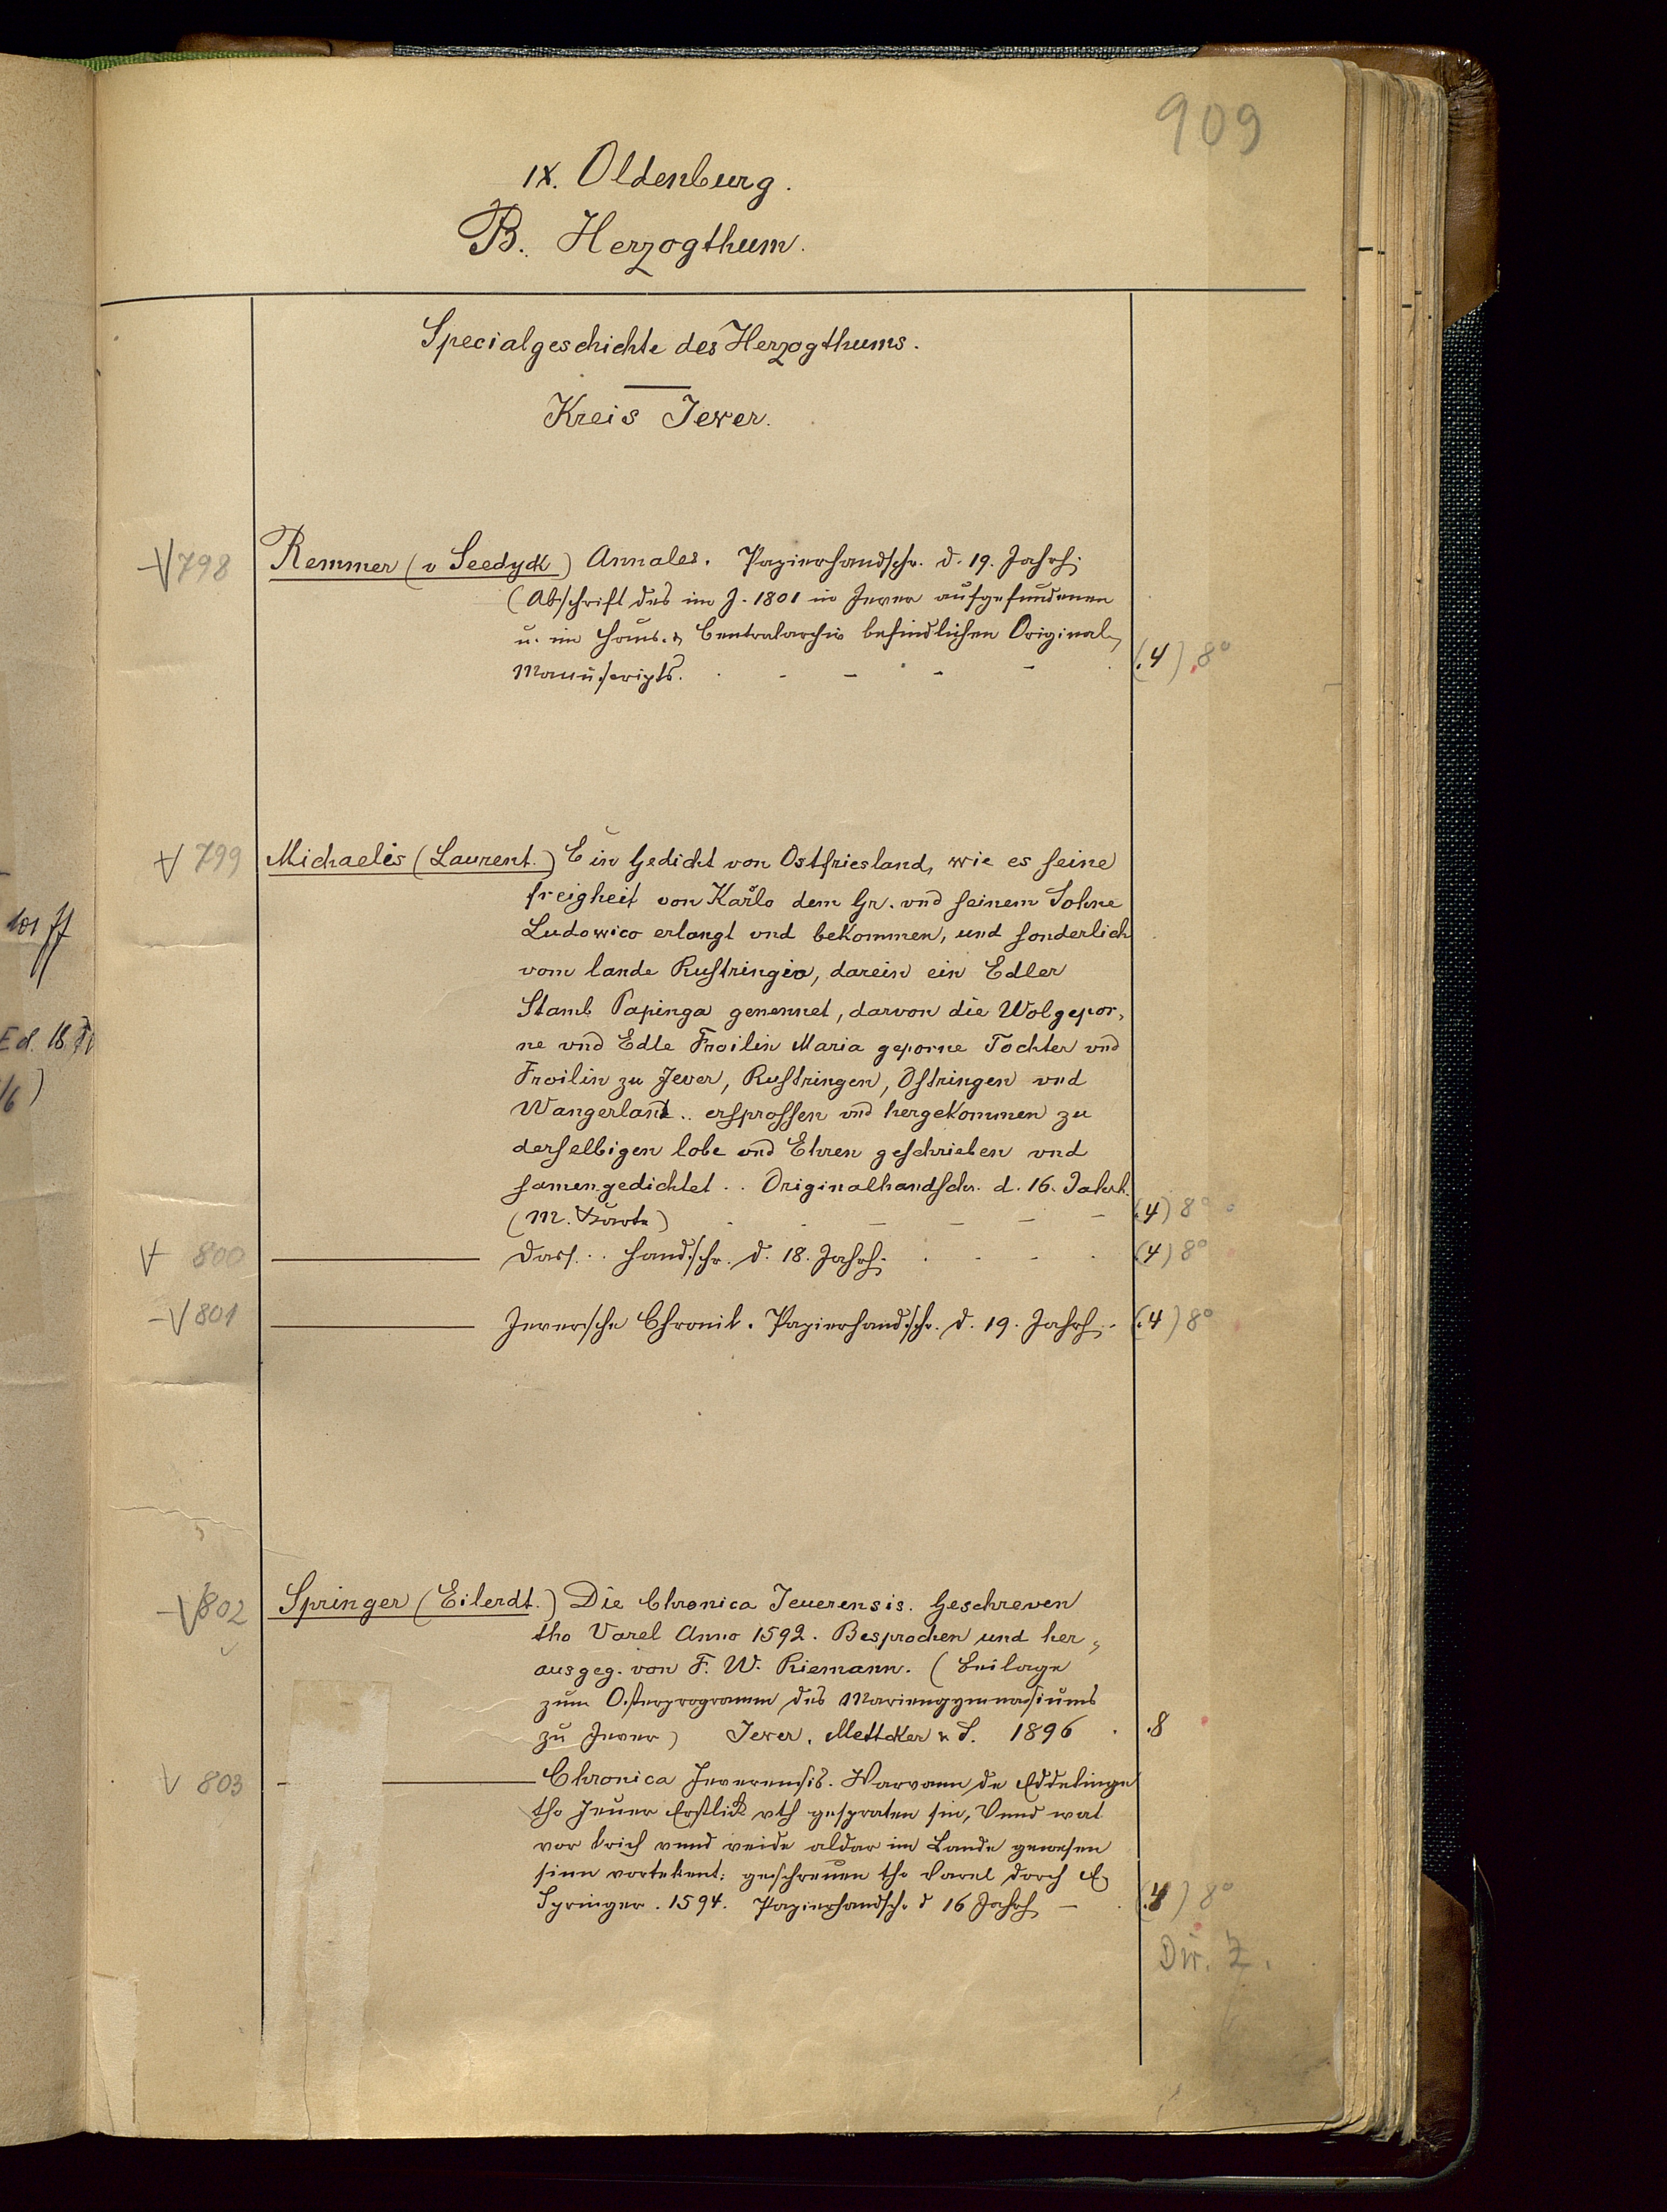 909
IX. Oldenburg.
B. Herzogthum.
Specialgeschichte des Herzogthums.
Kreis Jever.
798 Remmer (v Seedyck) Annales. Papierhandschr. d. 19. Jahrh.
(Abschrift des im J. 1801 in Jever aufgefundenen
u. im Haus- & Centralarchiv befindlichen Original-
Manuscripts. (4) 8°
799 Michaelis (Laurent.) Ein Gedicht von Ostfriesland, wie es seine
freigheit von Karlo dem Gr. vnd seinem Sohne
Ludowico erlangt vnd bekommen, und sonderlich
vom lande Rustringia, darein ein Edler
Stamb Papinga genennet, darvon die Wolgepor-
ne vnd Edle Froilin Maria geporne Tochter vnd
Froilin zu Jever, Rustringen, Ostringen vnd
Wangerland.. ersprossen vnd hergekommen zu
derselbigen lobe vnd Ehren geschrieben vnd
samengedichtet.. Originalhandschr. d. 16. Jahrh.
(M. ) (4) 8°
800 Dass.. Handschr. d. 18. Jahrh. (4) 8°
801 Jeversche Chronik. Papierhandschr. d. 19. Jahrh. (4) 8°
802 Springer (Eilerdt.) Die Chronica Jeuerensis. Geschreven
tho Varel Anno 1592. Besprochen und her-
ausgeg. von F. W. Riemann. (Beilage
zum Osterprogramm des Mariengymnasiums
zu Jever) Jever, Mettcker & S. 1896 . 8
803 Chronica Jeverensis. Warvann de Eddelinge
tho Jeuer Erstlick vth gespraten sin, Vnnd wat
vor krich vnnd veide aldar im Lande gewesen
sinn vortekent: geschreuen tho Varel dorch E.
Springer. 1594. Papierhandschr. d 16 Jahrh. (4) 8°
Dir. Z.
101 ff
Ed. 18
/6)